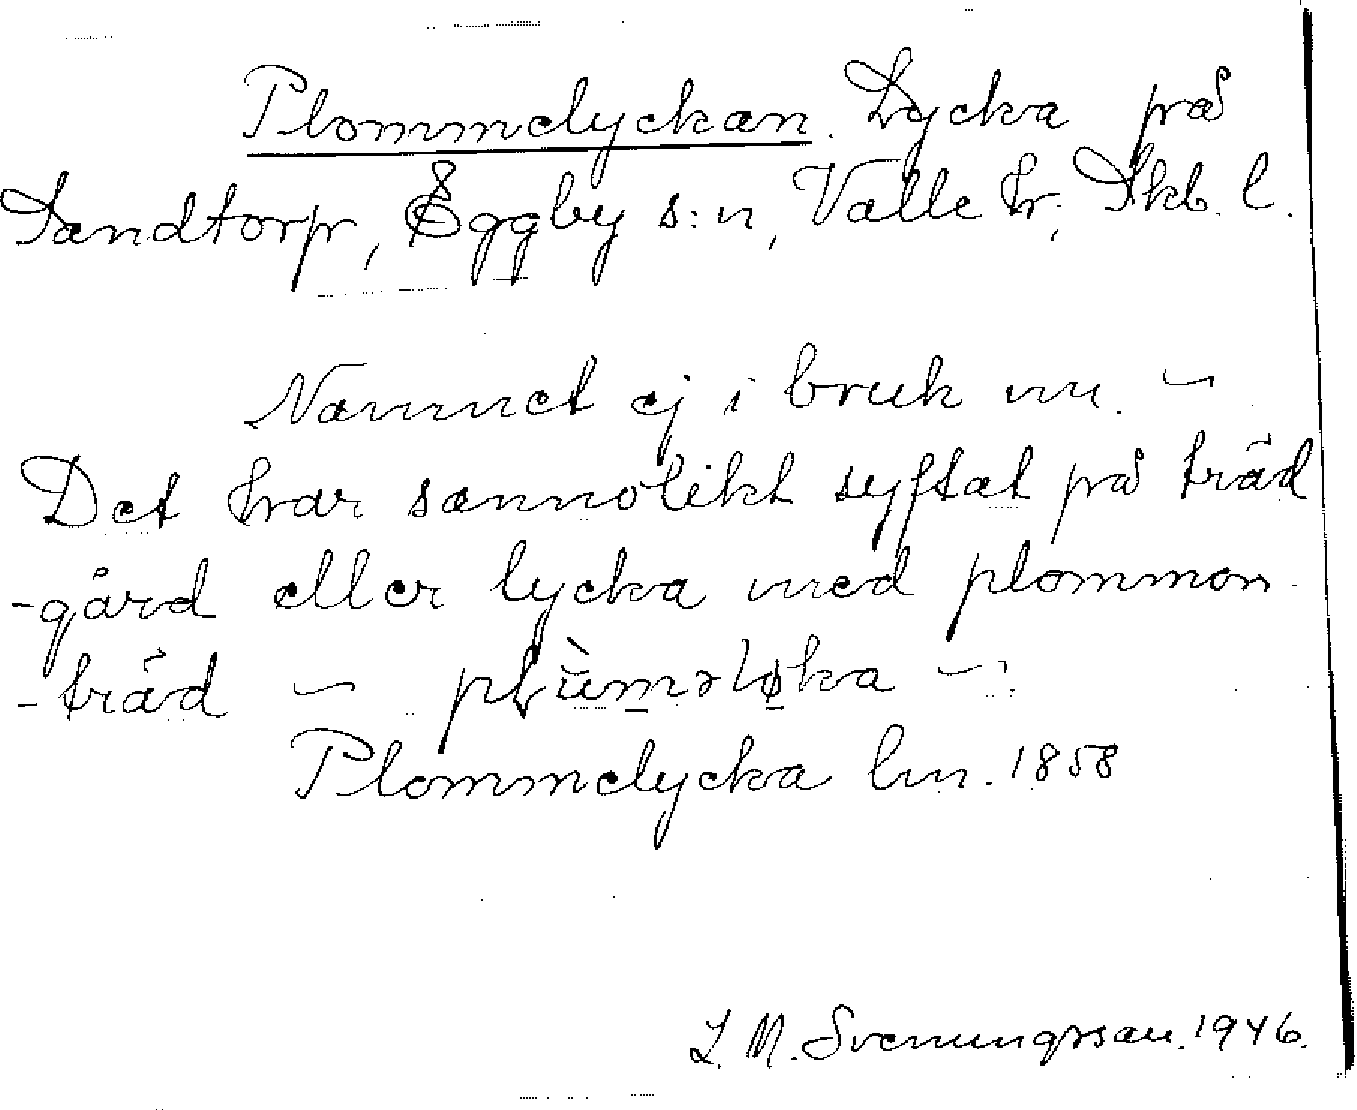 Plommelyckan. Lycka på
Sandtorp, Eggby s:n, Valle hr, Skb. l.
Namnet ej i bruk nu. –
Det har sannolikt syftat på träd
-gård eller lycka med plommon-
-träd –
Plommelycka lm. 1858
L. M. Svenungsson. 1946.